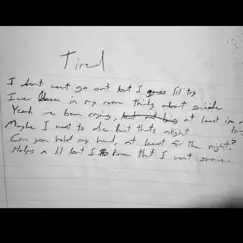 Tired
I dont want go out but I guess I'll try
I've been in my room thinking about suicide
Yeah been crying, at least im
Maybe I want to die but thats alright
Can you hold my hand, at least for the night?
Helps a lil but I know that I wont survive.